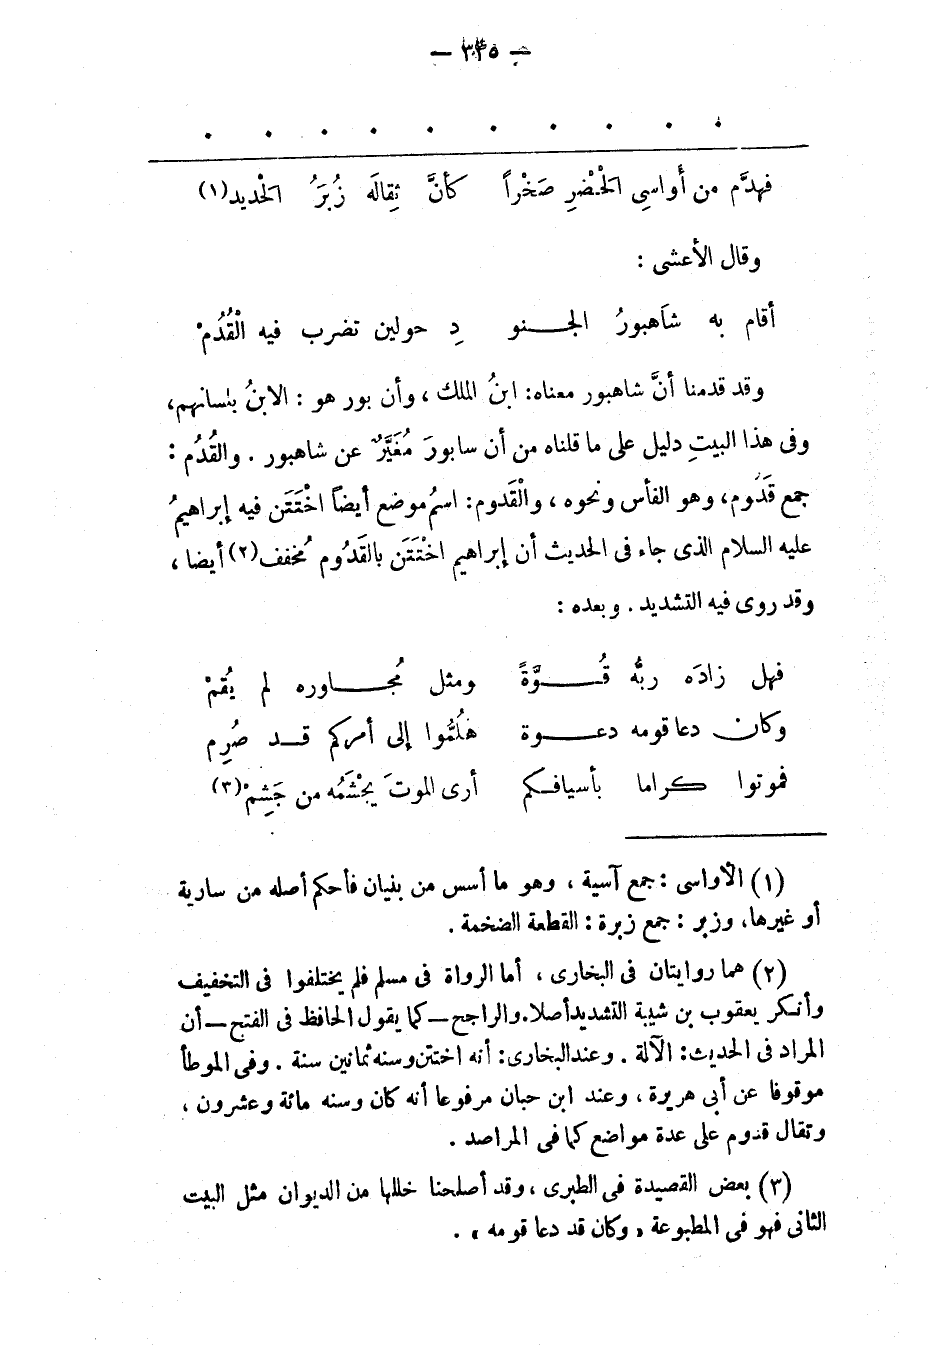 فهدَّم من أَواسِي الحْضْرِ صَخْراً كأنَّ ثِقالَه زُبَرُ الحْديد(١)
وقال الأعشى :
أقام به شاَهبورُ الجنو دِ حولين تضرب فيه الْقُدُمْ
وقد قدمنا أنَّ شاهبور معناه: ابنُ الملك ، وأن بور هو : الابنُ بلسانهم،
وفى هذا البيتِ دليل على ما قلناه من أن سابورَ مُغَيَّرٌ عن شاهبور . والقُدُم :
جمع قَدُوم، وهو الفأس ونحوه ، والْقَدوم: اسمُ موضع أيضاً اخْتَتَن فيه إبراهيمُ
عليه السلام الذى جاء فى الحديث أن إبراهيم اخْتَتَن بالقَدُوم مُخفف(٢) أيضا ،
وقد روى فيه التشديد . وبعده :
فهل زادَه ربُّه قُوَّةً ومثل مُجاوره لم يُقمْ
وكان دعا قومه دعوة هَلُمُّوا إلى أمركم قد صُرِم
فموتوا كراما بأسيافكم أرى الموتَ يجْشَمُه من جَشِمْ(٣)
(١) الأواسى : جمع آسية ، وهو ما أسس من بنيان فأحكم أصله من سارية
أو غيرها، وزبر : جمع زبرة : القطعة الضخمة .
(٢) هما روايتان فى البخارى ، أما الرواة فى مسلم فلم يختلفوا فى التخفيف
وأنكر يعقوب بن شيبة التشديد أصلا. والراجح – كما يقول الحافظ فى الفتح – أن
المراد فى الحديث: الآلة . وعند البخارى: أنه اختتن وسنه ثمانين سنة . وفى الموطأ
موقوفا عن أبى هريرة ، وعند ابن حبان مرفوعا أنه كان وسنه مائة وعشرون ،
وتقال قدوم على عدة مواضع كما فى المراصد .
(٣) بعض القصيدة فى الطبرى ، وقد أصلحنا خللها من الديوان مثل البيت
الثانى فهو فى المطبوعة « وكان قد دعا قومه » .